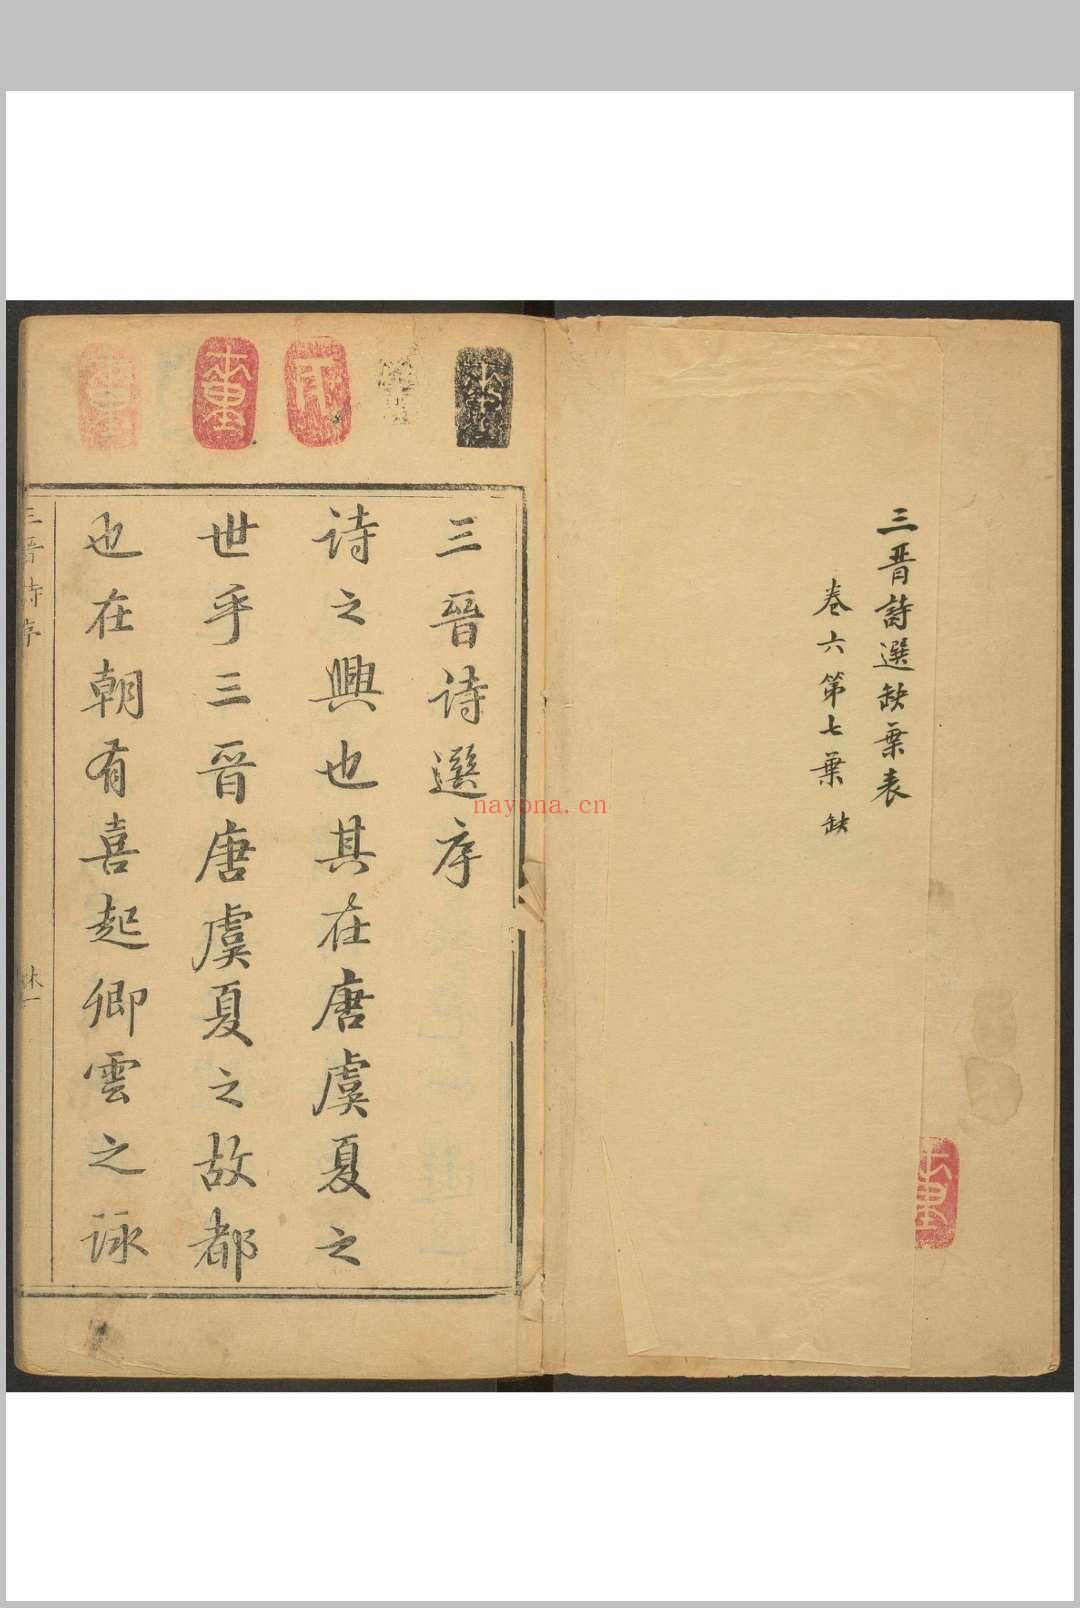 三晉詩選缺葉表
卷六第七葉 缺
三晉詩選序
詩之興也其在唐虞夏之
世乎三晉唐虞夏之故都
也在朝有喜起卿雲之詠
三晉詩序
nayona.cn